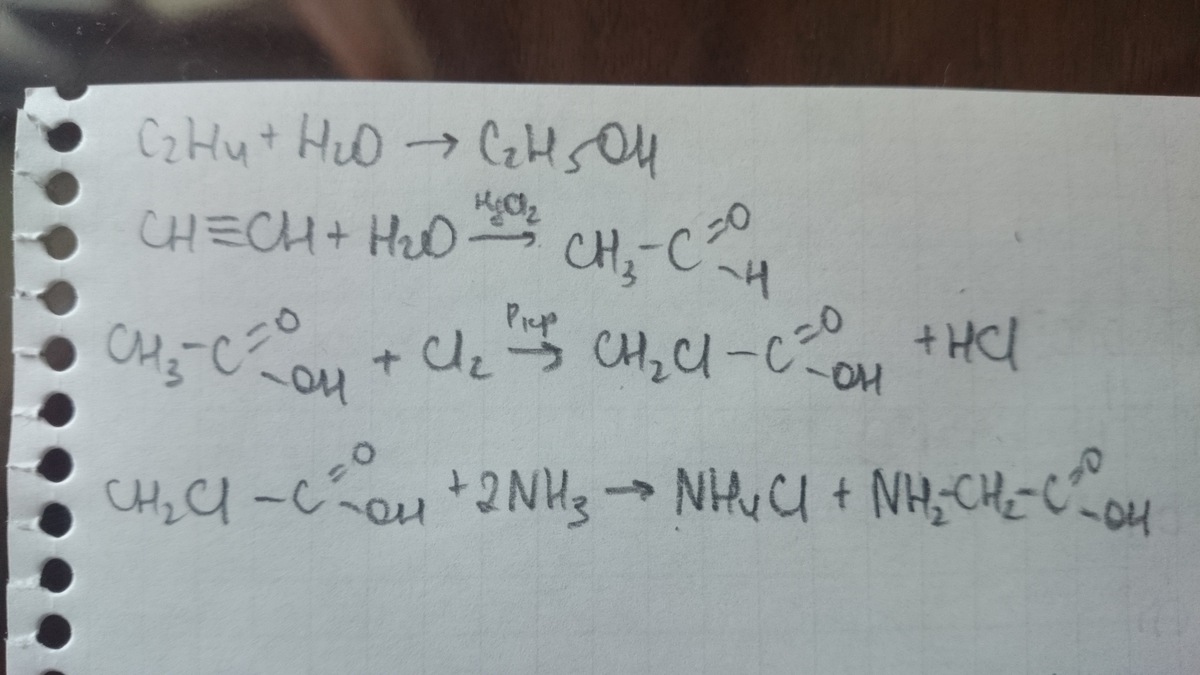 C₂H₄ + H₂O → C₂H₅OH
CH≡CH + H₂O →(HgCl₂) CH₃-C(=O)-H
CH₃-C(=O)-OH + Cl₂ →(Pкр) CH₂Cl-C(=O)-OH + HCl
CH₂Cl-C(=O)-OH + 2NH₃ → NH₄Cl + NH₂-CH₂-C(=O)-OH